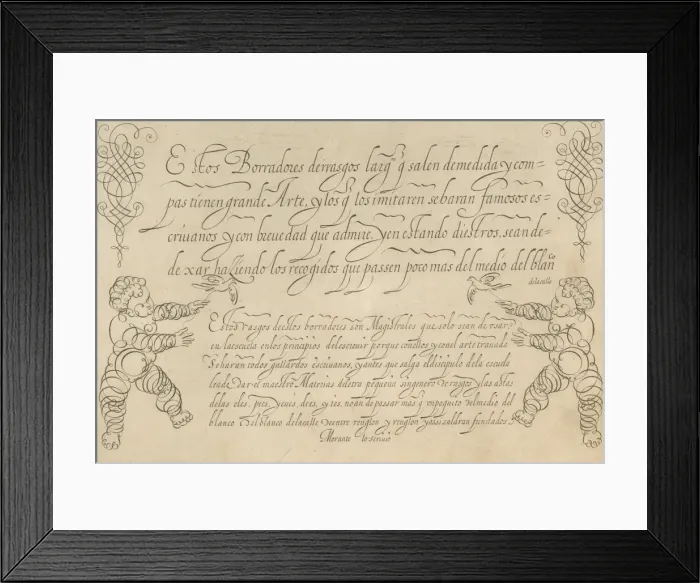 Estos Borradores derrasgos largᵒˢ q̃ salen demedida y com=
pas tienen grande Arte, y los q̃ los imitaren se haran famosos es=
criuanos y con breuedad que admire. y en estando diestros, sean de=
de xar haziendo los recogidos que passen poco mas del medio del blanᶜᵒ
dela calle
Estos rasgos destos borradores son Magistrales que solo sean de osar
en la escuela en los principios del escriuir porque con ellos y con el arte
se haran todos gallardos escriuanos, y antes que salga el discipulo dela escuela
el maestro Materias de letra pequeña sin genero de rasgos y las astas
delas eles, pees, y no an de passar mas q̃ un poquito del medio del
blanco del blanco dela calle de entre renglon y renglon y assi saldran fundados
Morante lo scriuio